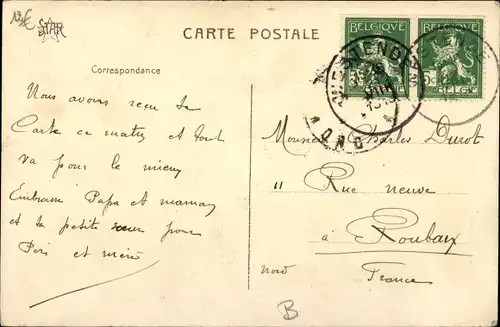 19/E
STAR
CARTE POSTALE
BELGIQUE BELGIQUE
5 5
BELGIË
Correspondance
Nous avons reçu ta
Carte ce matin et tout
va pour le mieux
Embrasse Papa et maman
et ta petite sœur pour
Père et mère
Monsieur Charles Durot
11 Rue neuve
à Roubaix
Nord
France
B